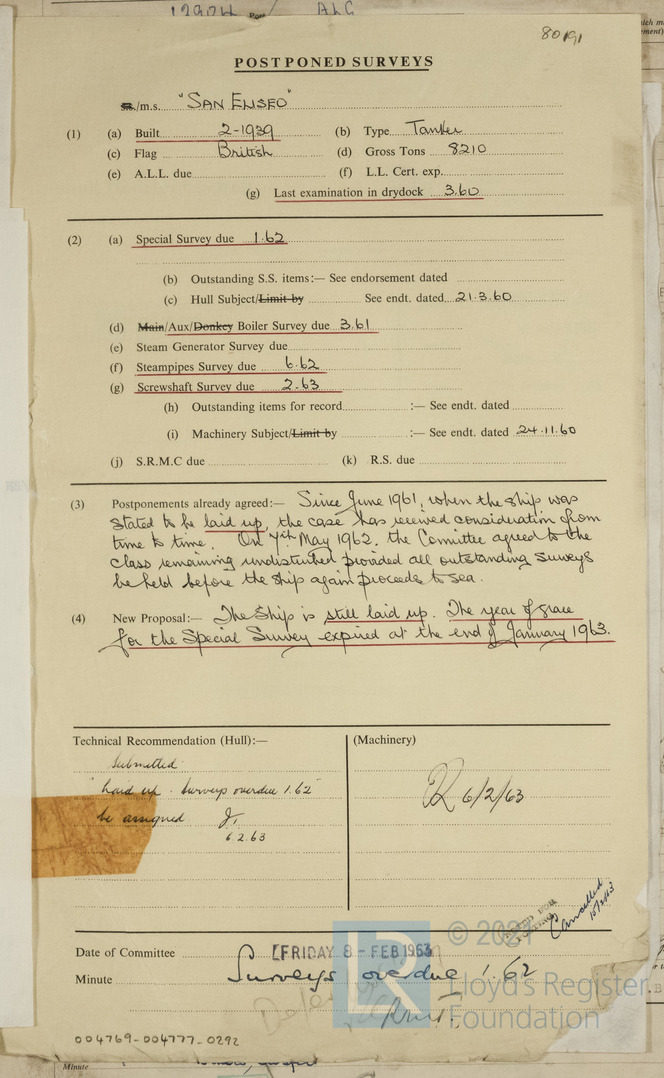 80191
POSTPONED SURVEYS
ss./m.s. "SAN ELISEO"
(1) (a) Built 2-1939 (b) Type Tanker
(c) Flag British (d) Gross Tons 8210
(e) A.L.L. due (f) L.L. Cert. exp.
(g) Last examination in drydock 3.60
(2) (a) Special Survey due 1.62
(b) Outstanding S.S. items:— See endorsement dated
(c) Hull Subject/Limit by See endt. dated 21.3.60
(d) Main/Aux/Donkey Boiler Survey due 3.61
(e) Steam Generator Survey due
(f) Steampipes Survey due 6.62
(g) Screwshaft Survey due 2.63
(h) Outstanding items for record :— See endt. dated
(i) Machinery Subject/Limit by :— See endt. dated 24.11.60
(j) S.R.M.C due (k) R.S. due
(3) Postponements already agreed:— Since June 1961, when the ship was
stated to be laid up, the case has received consideration from
time to time. On 7th May 1962, the Committee agreed to the
class remaining undisturbed provided all outstanding surveys
be held before the ship again proceeds to sea.
(4) New Proposal:— The ship is still laid up. The year of grace
for the Special Survey expired at the end of January 1963.
Technical Recommendation (Hull):— (Machinery)
Submitted
"Laid up. Surveys overdue 1.62"
be assigned
6.2.63
6/2/63
Cancelled
Date of Committee FRIDAY 8 - FEB 1963
Minute Surveys overdue 1.62
© 2021
Lloyd's Register
Foundation
004769-004777-0292
Minute